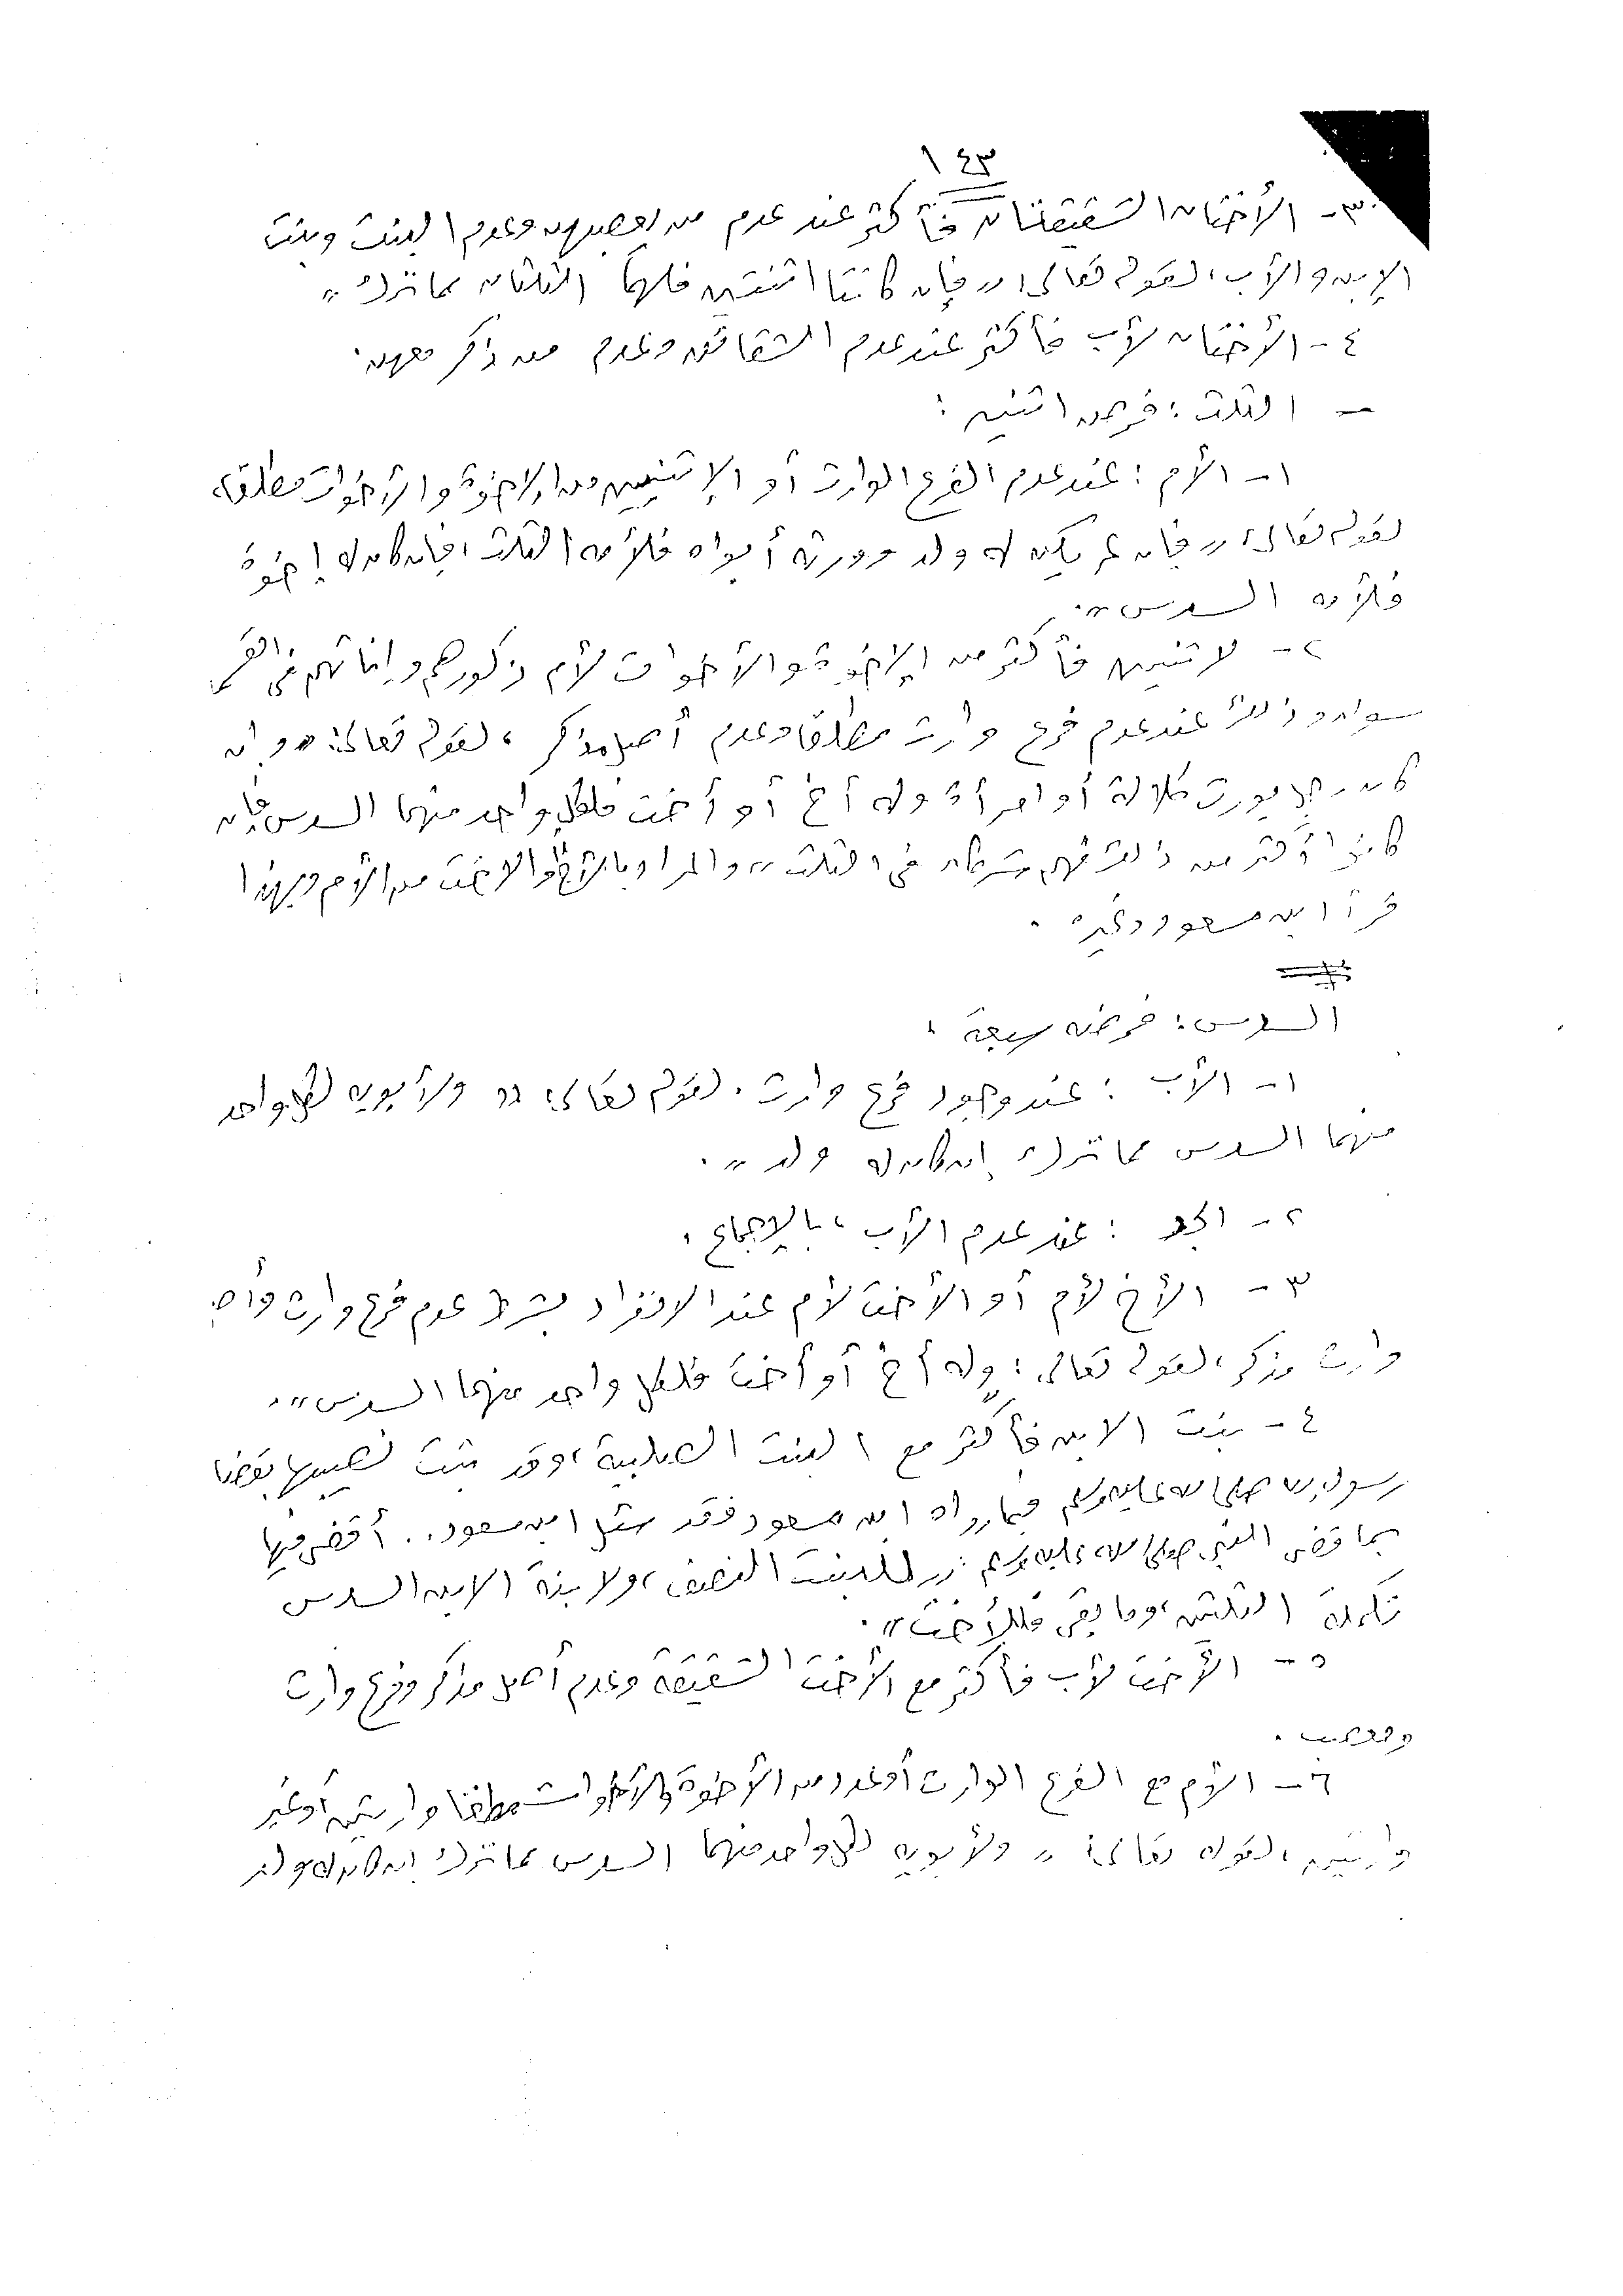 ١٤٣
٣- الأختان الشقيقتان فأكثر عند عدم من يعصبهن وعدم البنت وبنت
الإبن والأب، لقوله تعالى: «فإن كانتا اثنتين فلهما الثلثان مما ترك»
٤- الأختان لأب فأكثر عند عدم الشقائق وعدم من ذكر معهن.
- الثلث: فرض اثنين:
١- الأم: عند عدم الفرع الوارث أو الإثنين من الإخوة والأخوات مطلقا
لقوله تعالى: «فإن لم يكن له ولد وورثه أبواه فلأمه الثلث، فإن كان له إخوة
فلأمه السدس».
٢- لاثنين فأكثر من الإخوة والأخوات لأم ذكورهم وإناثهم في القسمة
سواء وذلك عند عدم فرع وارث مطلقا وعدم أصل مذكر، لقوله تعالى: «وإن
كان رجل يورث كلالة أو امرأة وله أخ أو أخت فلكل واحد منهما السدس فإن
كانوا أكثر من ذلك فهم شركاء في الثلث» والمراد بالأخ والاخت من الأم وبهذا
قرأ ابن مسعود وغيره.
السدس: فرضه سبعة:
١- الأب: عند وجود فرع وارث. لقوله تعالى: «ولأبويه لكل واحد
منهما السدس مما ترك إن كان له ولد».
٢- الجد: عند عدم الأب، بالإجماع.
٣- الأخ لأم أو الأخت لأم عند الانفراد بشرط عدم فرع وارث وأصل
وارث مذكر، لقوله تعالى: «وله أخ أو أخت فلكل واحد منهما السدس».
٤- بنت الابن فأكثر مع البنت الصلبية، وقد ثبت نصيبها بقضاء
رسول الله صلى الله عليه وسلم فيما رواه ابن مسعود فقد سئل ابن مسعود.. أقضي فيها
بما قضى النبي صلى الله عليه وسلم: «للبنت النصف، ولابنة الابن السدس
تكملة الثلثين، وما بقي فللأخت».
٥- الأخت لأب فأكثر مع الأخت الشقيقة وعدم أصل مذكر وفرع وارث
ومعصب.
٦- الأم مع الفرع الوارث أو عدد من الأخوة والأخوات مطلقا وارثين أو غير
وارثين، لقوله تعالى: «ولأبويه لكل واحد منهما السدس مما ترك إن كان له ولد